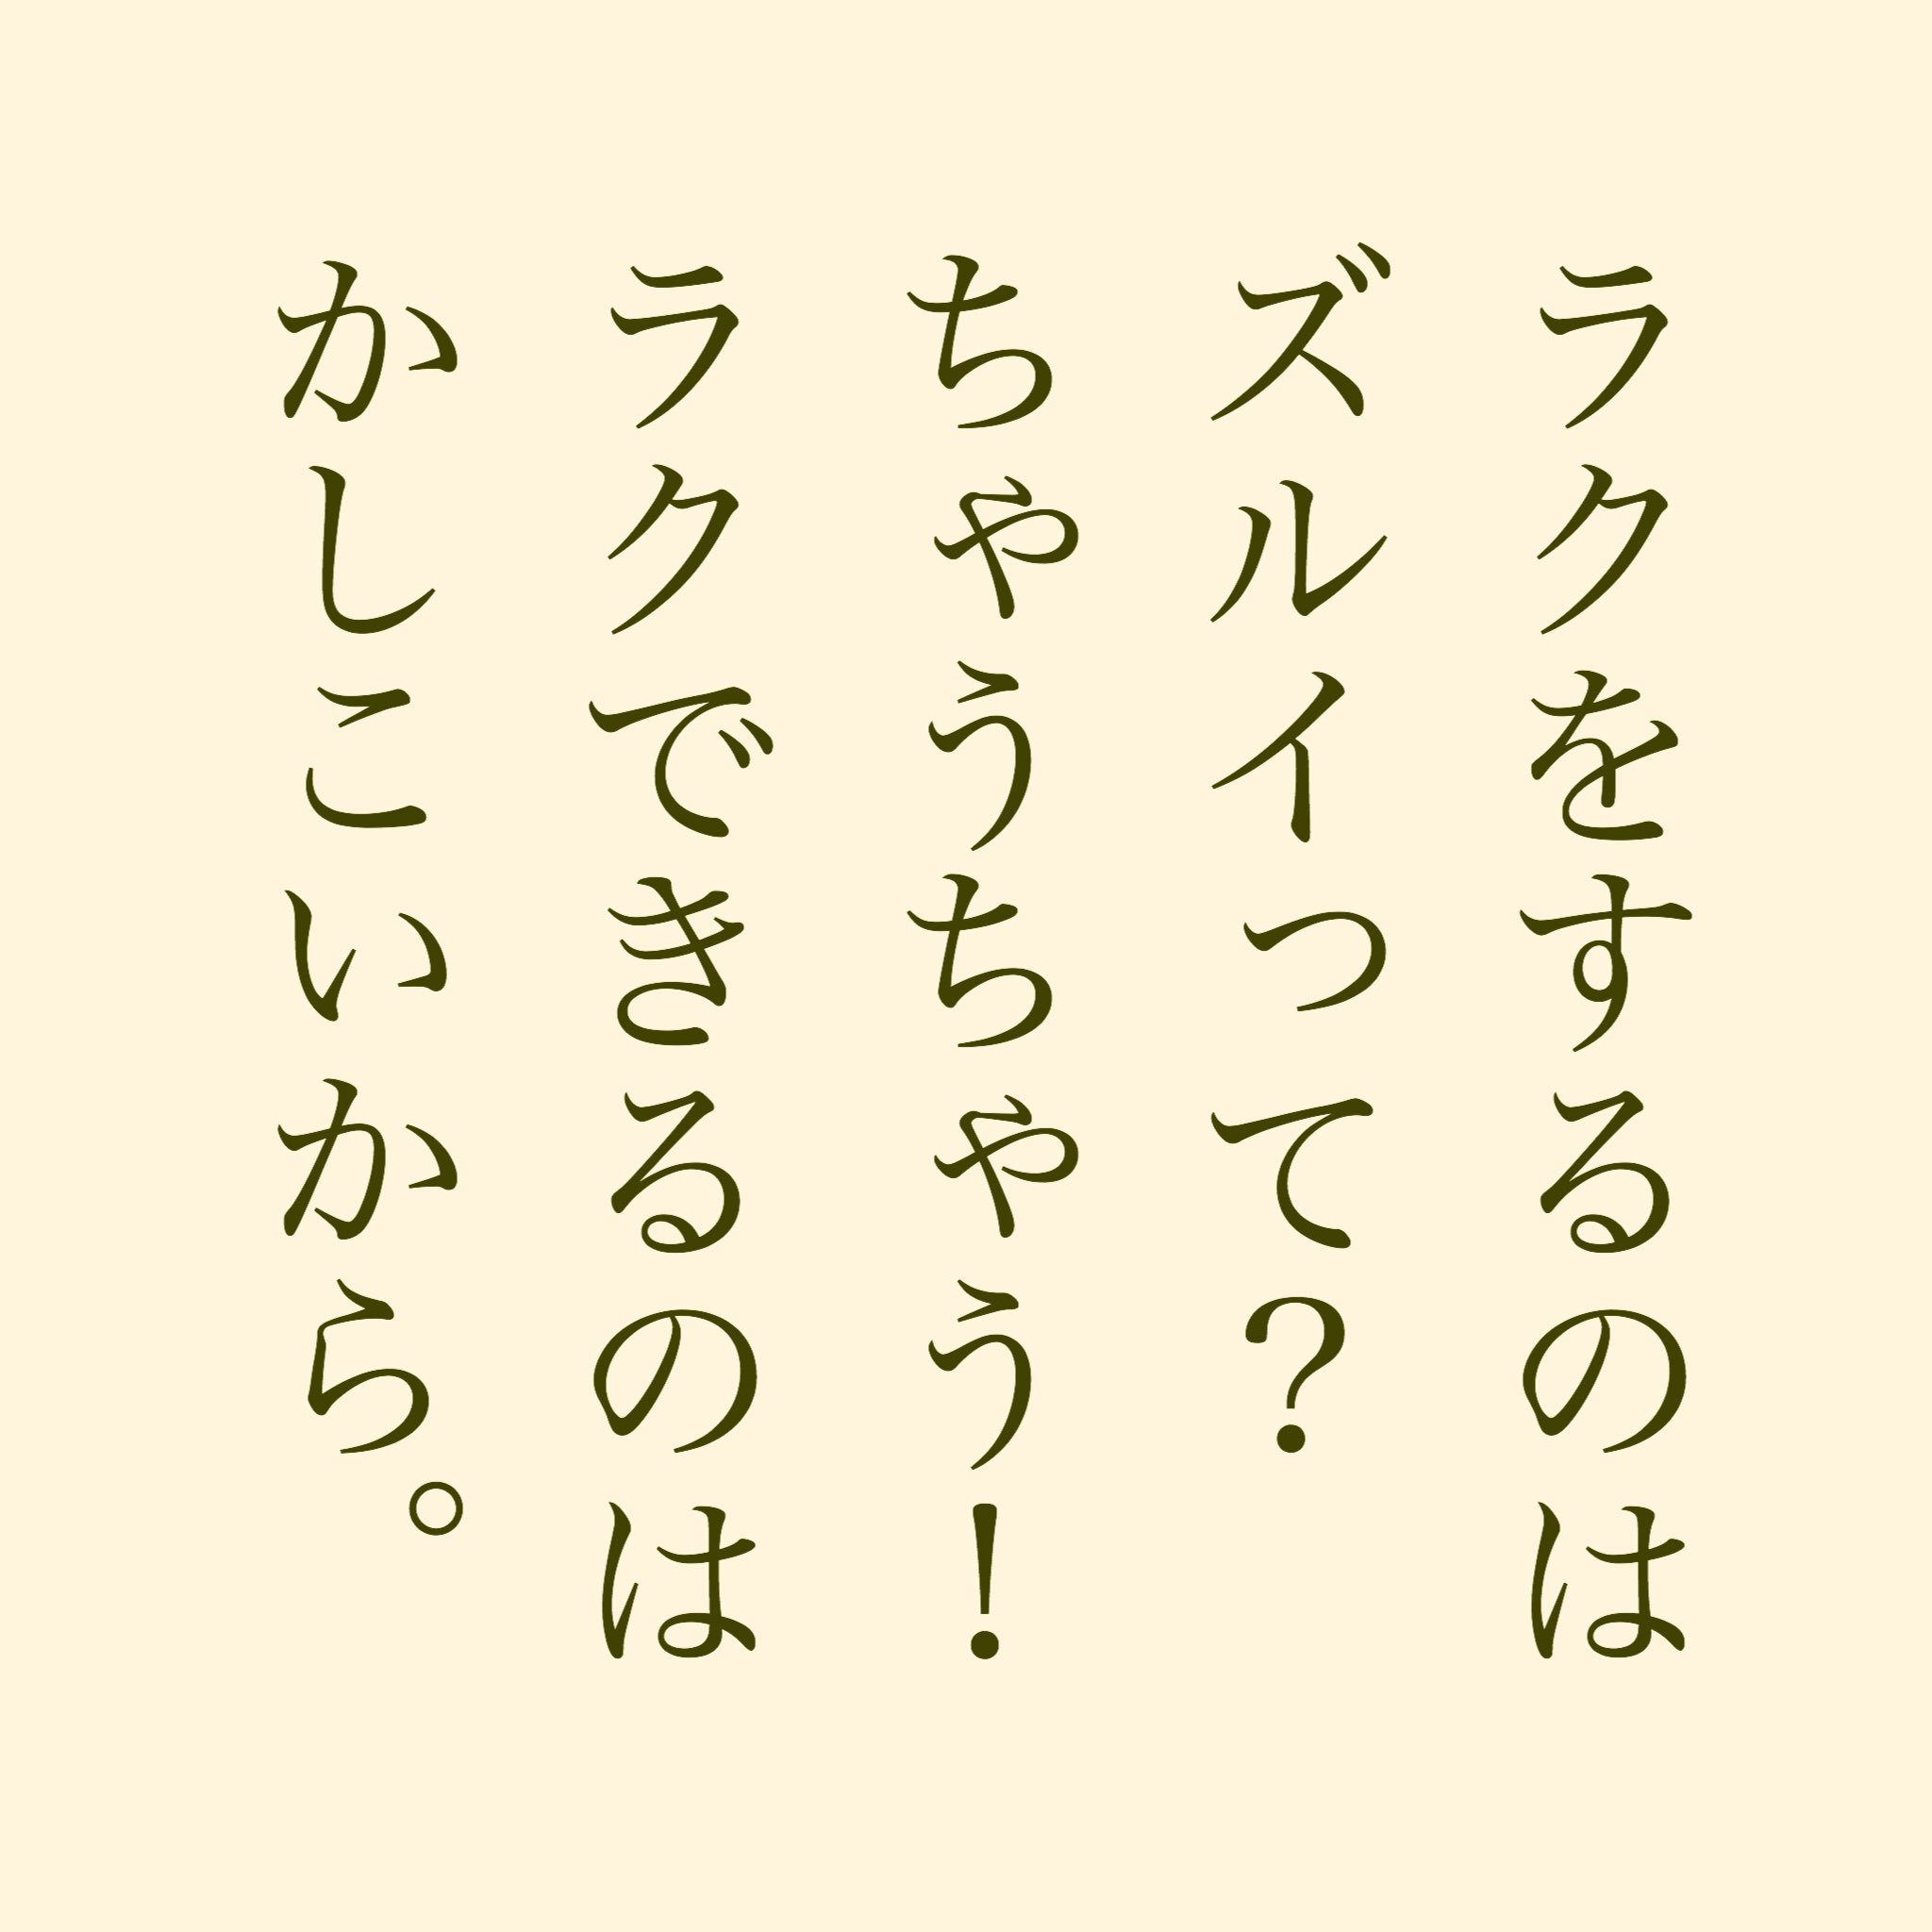 ラクをするのは
ズルイって？
ちゃうちゃう！
ラクできるのは
かしこいから。